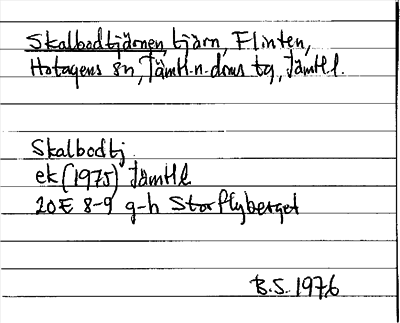 Skalbodtjärnen, tjärn, Flinten,
Hotagens sn, Jämtl.n. doms tg, Jämtl l.
Skalbodtj
ek (1975) Jämtl l
20E 8-9 g-h Storflyberget
B.S. 1976